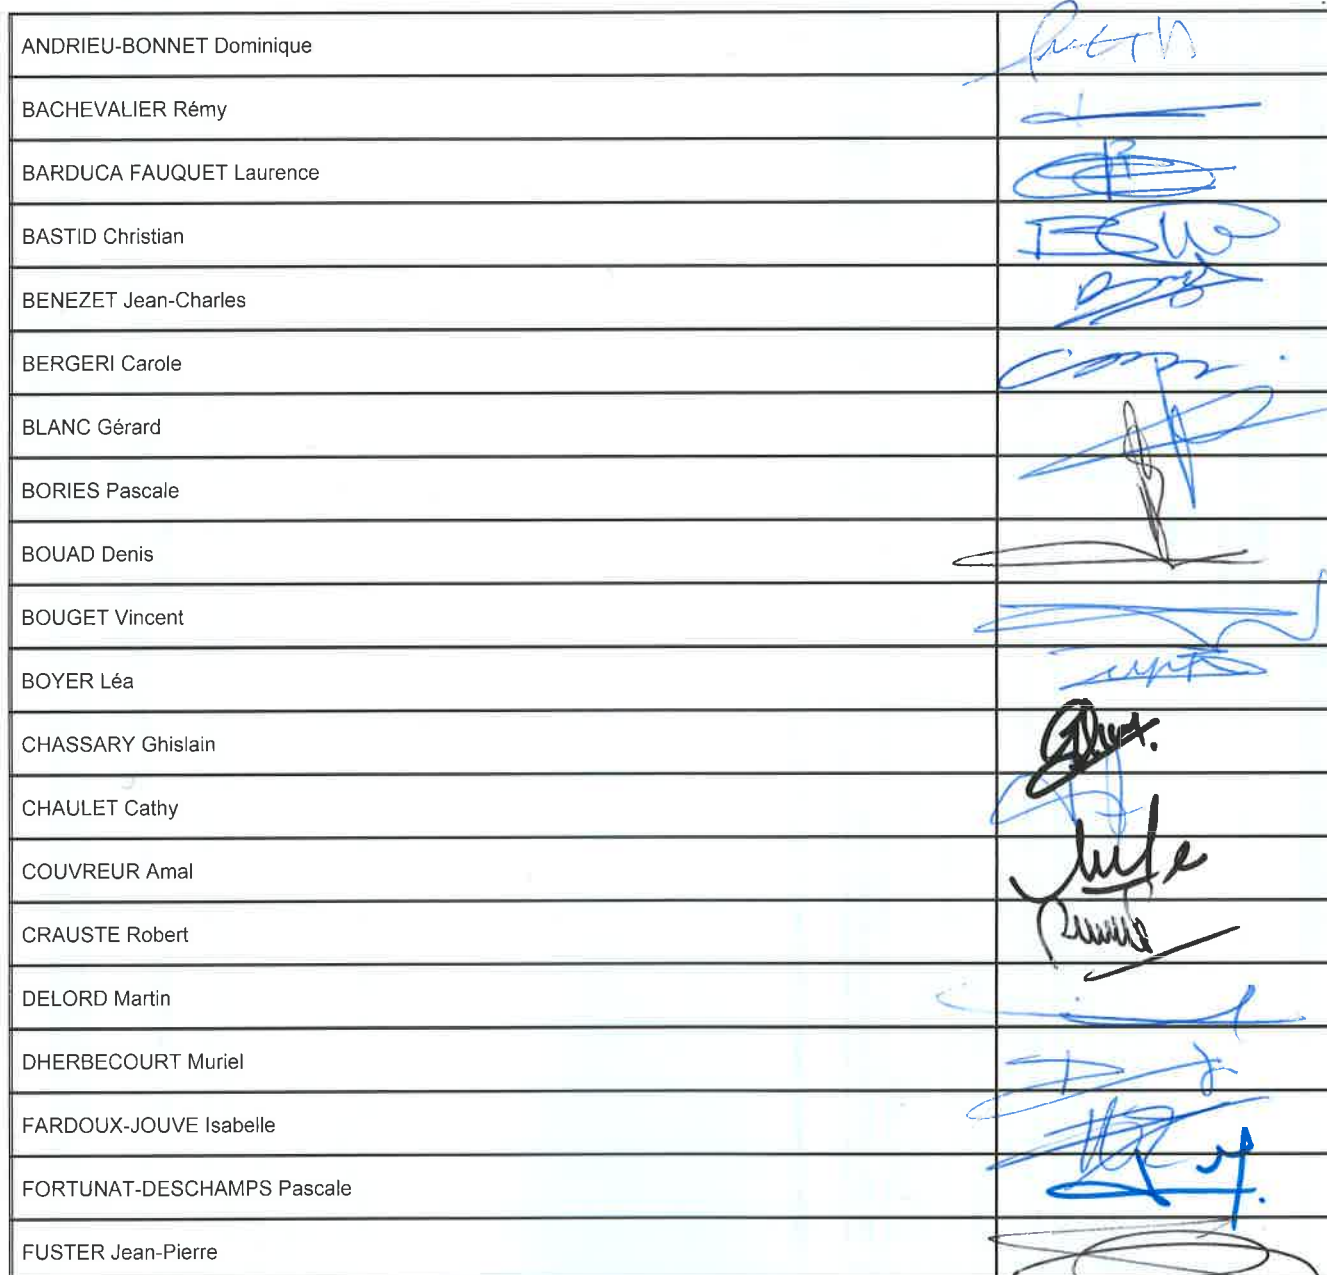 ANDRIEU-BONNET Dominique
BACHEVALIER Rémy
BARDUCA FAUQUET Laurence
BASTID Christian
BENEZET Jean-Charles
BERGERI Carole
BLANC Gérard
BORIES Pascale
BOUAD Denis
BOUGET Vincent
BOYER Léa
CHASSARY Ghislain
CHAULET Cathy
COUVREUR Amal
CRAUSTE Robert
DELORD Martin
DHERBECOURT Muriel
FARDOUX-JOUVE Isabelle
FORTUNAT-DESCHAMPS Pascale
FUSTER Jean-Pierre